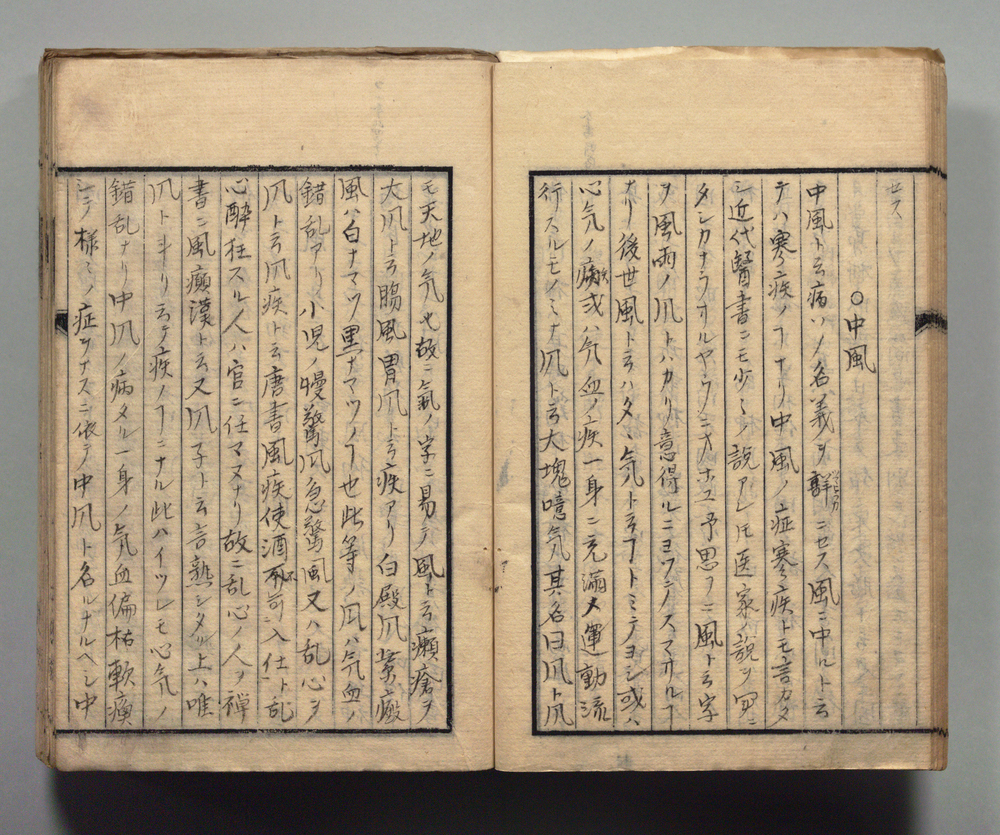 セス
○中風
中風ト云病ハソノ名義ヲ詳ニセス風ニ中ルト云
テハ寒疾ノヿナリ中風ノ症寒疾トモ言カタ
シ近代醫書ニモ少ミ説アレ𪜈医家ノ説ツ
タシカナラサルヤウニオホユ予思フニ風ト云字
ヲ風雨ノ凬トハカリ意得ルニヨツテスマサルヿ
ナリ後世風ト云ハタヽ気ト云フヿトミテヨシ或ハ
心気ノ病或ハ气血ノ疾一身ニ充滿メ運動流
行スルモノミナ凬ト云大塊噫気其名曰凬ト凬
モ天地ノ気也故ニ氣ノ字ニ易テ風ト云癩瘡ヲ
大凬ト云腸風胃凬ト云疾アリ白殿凬紫癜
風ハ白ナマツ黒ナマツノヿ也此等ノ凬ハ気血ノ
錯乱アリ小児ノ慢驚凬急驚風又ハ乱心ヲ
凬ト云凬疾ト云唐書風疾使酒不可入仕ト乱
心酔狂スル人ハ官ニ任マヌナリ故ニ乱心ノ人ヲ禅
書ニ風癲漢ト云又凬子ト云言熟シタル上ハ唯
凬ト斗リ云テ疾ノヿニナル此ハイツレモ心気ノ
錯乱ナリ中凬ノ病タル一身ノ気血偏枯軟瘓
シテ様ミノ症ヲナスニ依テ中凬ト名ルナルヘシ中